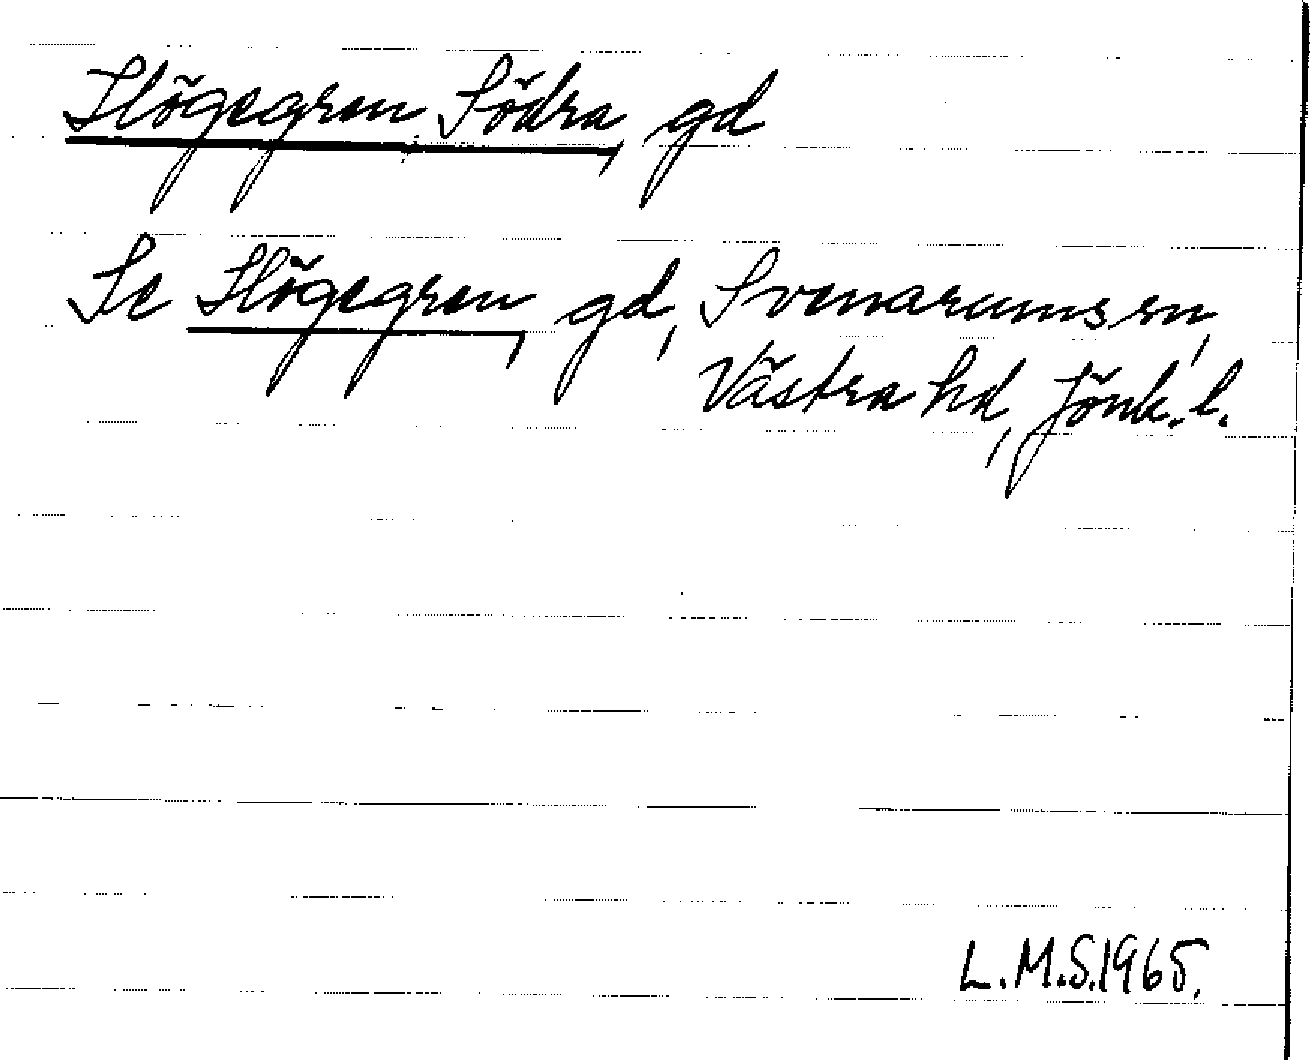 Slögegren Södra, gd
Se Slögegren, gd, Svenarums sn,
Västra hd, Jönk. l.
L.M.S. 1965.